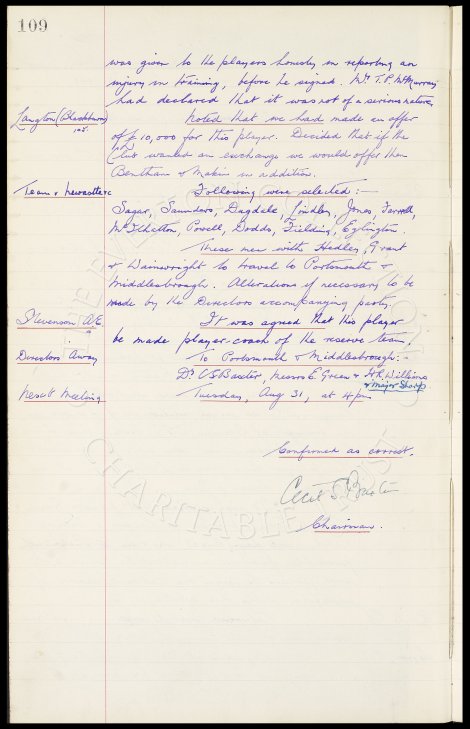 109
was given to the players honesty in reporting an
injury in training, before he signed. Mr. T. P. McMurray
had declared that it was not of a serious nature.
Langton (Blackburn)
Noted that we had made an offer
of £10,000 for this player. Decided that if the
Club wanted an exchange we would offer them
Bentham & Makin in addition.
Team v Newcastle
Following were selected :—
Sagar, Saunders, Dugdale, Lindley, Jones, Farrell,
McIlhatton, Powell, Dodds, Fielding, Eglington.
These men with Hedley, Grant
& Wainwright to travel to Portsmouth &
Middlesbrough. Alterations if necessary to be
made by the Directors accompanying party.
Stevenson A.E.
It was agreed that this player
be made player-coach of the reserve team.
Directors Away
To Portsmouth & Middlesbrough :-
Dr. C. S. Baxter, Messrs E. Green & H. R. Williams
& Major Sharp
Next Meeting
Tuesday, Aug 31, at 4 pm
Confirmed as correct.
Cecil S. Baxter
Chairman.
CHARITABLE TRUST